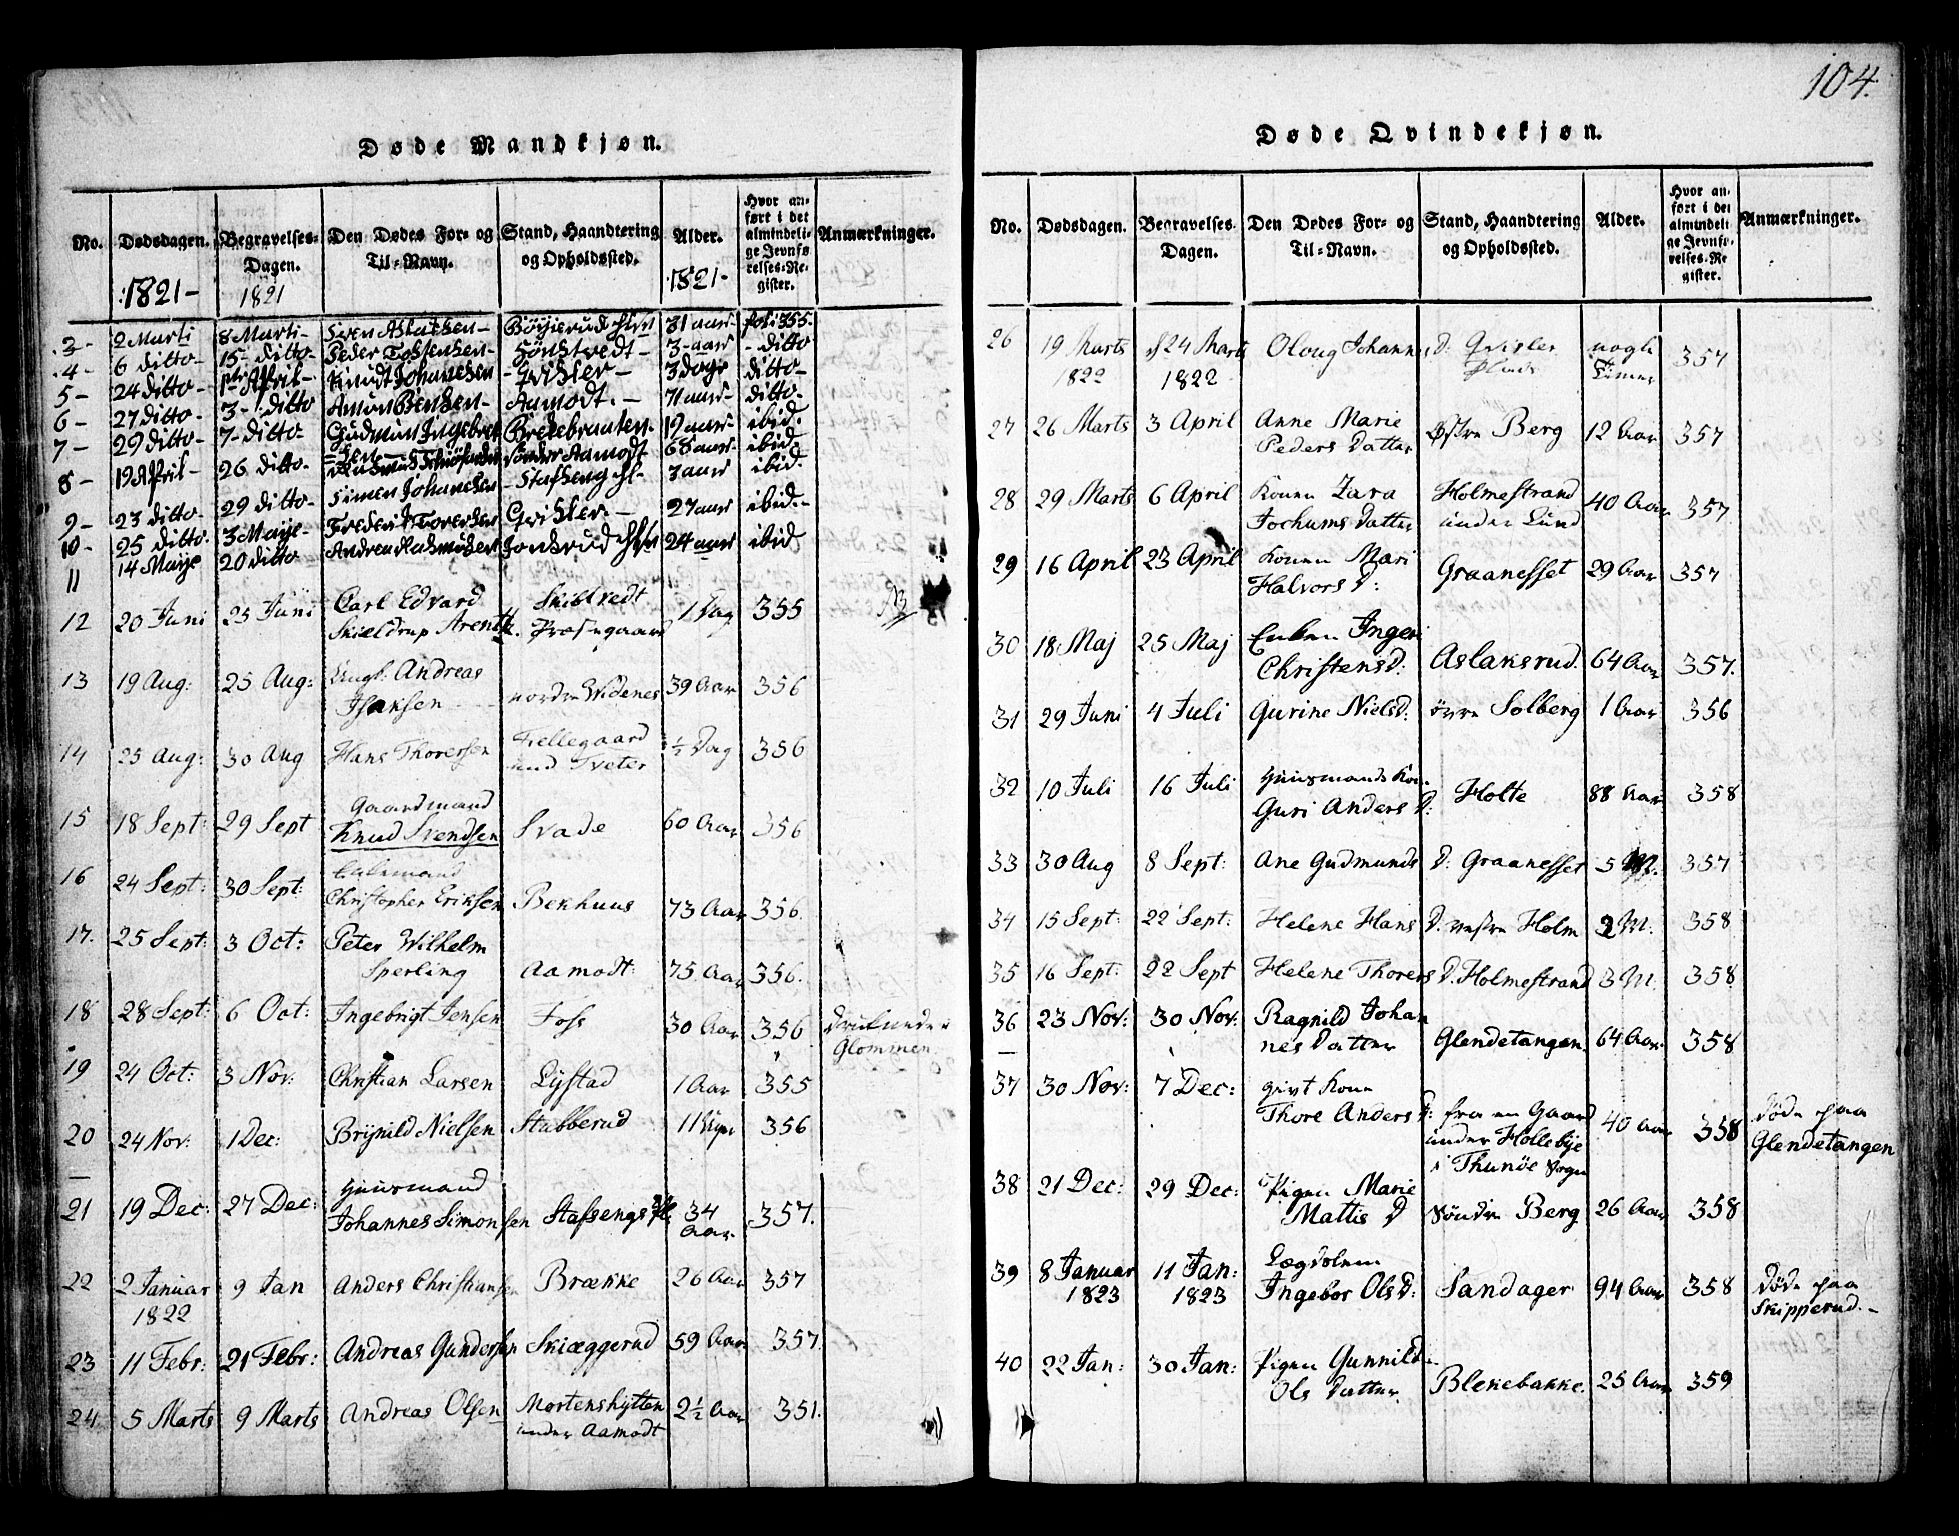 104.
Døde Mandkjøn.
No. Dødsdagen. Begravelses-Dagen. Den Dødes For- og Til-Navn. Stand, Haandtering og Opholdssted. Alder. Hvor anført i det almindelige Jevnførelses-Register. Anmærkninger.
1821- 1821 1821-
3- 2 Marti 8 Marti- 31 aar- foli 355.
4- 6 ditto- 15 ditto- Peder 3-aar - ditto
5- 24 ditto- April- Knudt Johanesen Grisler- 3 dage ditto-
6- 27 ditto- 3- ditto Amun Bensen- Aamodt.- 71 aar- ditto-
7- 29 ditto- 7-ditto- Gudmun Ingebret Brekebraaten- 19 aar- ibid.
-sen- Sønder Aamodt 68 aar- ibid.
8- 19 April- 26 ditto- Simen Johanesen -Stafseng 3 aar ibid.
9- 23 ditto- 29 ditto- Frederik Torersen Grisler.- 27 aar ibid.-
10- 25 ditto- 3 Maije- Andrea 24 aar ibid
11 14 Maije 20 ditto
12 20 Juni 25 Juni Carl Edvard Skibtvedt 1 Dag 355 NB
Skieldrup Arentz. Præstegaard
13 19 Aug: 25 Aug: Ungk. Andreas nordre Widenes 39 Aar 356
Isaksen
14 25 Aug: 30 Aug Hans Thorersen Fiellegaard ½ Dag 356
und Tveter
15 18 Sept: 29 Sept Gaardmand Svade 60 Aar 356
Knud Svendsen
16 24 Sept: 30 Sept: Enkemand
Christopher Eriksen Bekhuus 73 Aar 356.
17. 25 Sept: 3 Oct: Peter Wilhelm
Sperling Aamodt: 75 Aar 356.
18 28 Sept: 6 Oct: Ingebrigt Jensen Foss 30 Aar 356 druknede i
Glommen
19 24 Oct: 3 Nov: Christian Larsen Lystad 1 Aar 355
20 24 Nov: 1 Dec: Brynild Nielsen Stubberud 11 Uger 356
21 19 Dec: 27 Dec: Huusmand
Johannes Simonsen Stafsengs 34 Aar 357.
22 2 Januar 9 Jan Anders Christiansen Brække 26 Aar 357
1822
23 11 Febr: 21 Febr: Andreas Gundersen Skiæggerud 59 Aar 357.
24. 5 Marts 9 Marts Andreas Olsen Mortenshytten 2½ Aar 351.
under Aamodt
Døde Qvindekjøn.
No. Dødsdagen. Begravelses-Dagen. Den Dødes For- og Til-Navn. Stand, Haandtering og Opholdssted. Alder. Hvor anført i det almindelige Jevnførelses-Register. Anmærkninger.
26 19 Marts 24 Marts Oloug Johannes D: Grisler nogle 357
1822 1822 Timer
27 26 Marts 3 April Anne Marie Østre Berg 12 Aar 357
Peders Datter
28 29 Marts 6 April Konen Zara Holmestrand 40 Aar 357.
Jochums Datter under Lund
29 16 April 23 April Konen Mari Graanesset 29 Aar 357
Halvors D:
30 18 Maj 25 Maj Enken Inger
Christensd: Aslaksrud. 64 Aar 357.
31 29 Juni 4 Juli Gurine Nielsd: øvre Solberg 1 Aar 356
32 10 Juli 16 Juli Huusmands Kone
Guri Anders D: Holte 88 Aar 358
33 30 Aug 8 Sept: Ane Gudmunds D: Graanesset 5 M. 357
34 15 Sept: 22 Sept: Helene Hans D. vestre Holm 2 M. 358
35 16 Sept: 22 Sept Helene Thorers D. Holmestrand 3 M. 358
36 23 Nov: 30 Nov: Ragnild Johan
nes Datter Glendetangen. 64 Aar 358
37 30 Nov: 7 Dec: givt Kone
Thore Anders D: fra en Gaard 40 Aar 358 døde paa
under Hollebye Glendetangen
i Thunøe Sogn
38 21 Dec: 29 Dec: Pigen Marie
Mattis D Søndre Berg 26 Aar 358
39 8 Januar 11 Jan: Lægdslem
1823 1823 Ingebor Olsd: Sandager 94 Aar 358 døde paa
Skipperud.-
40 22 Jan: 30 Jan: Pigen Gunnild
Ols Datter Blekebakke. 25 Aar 359